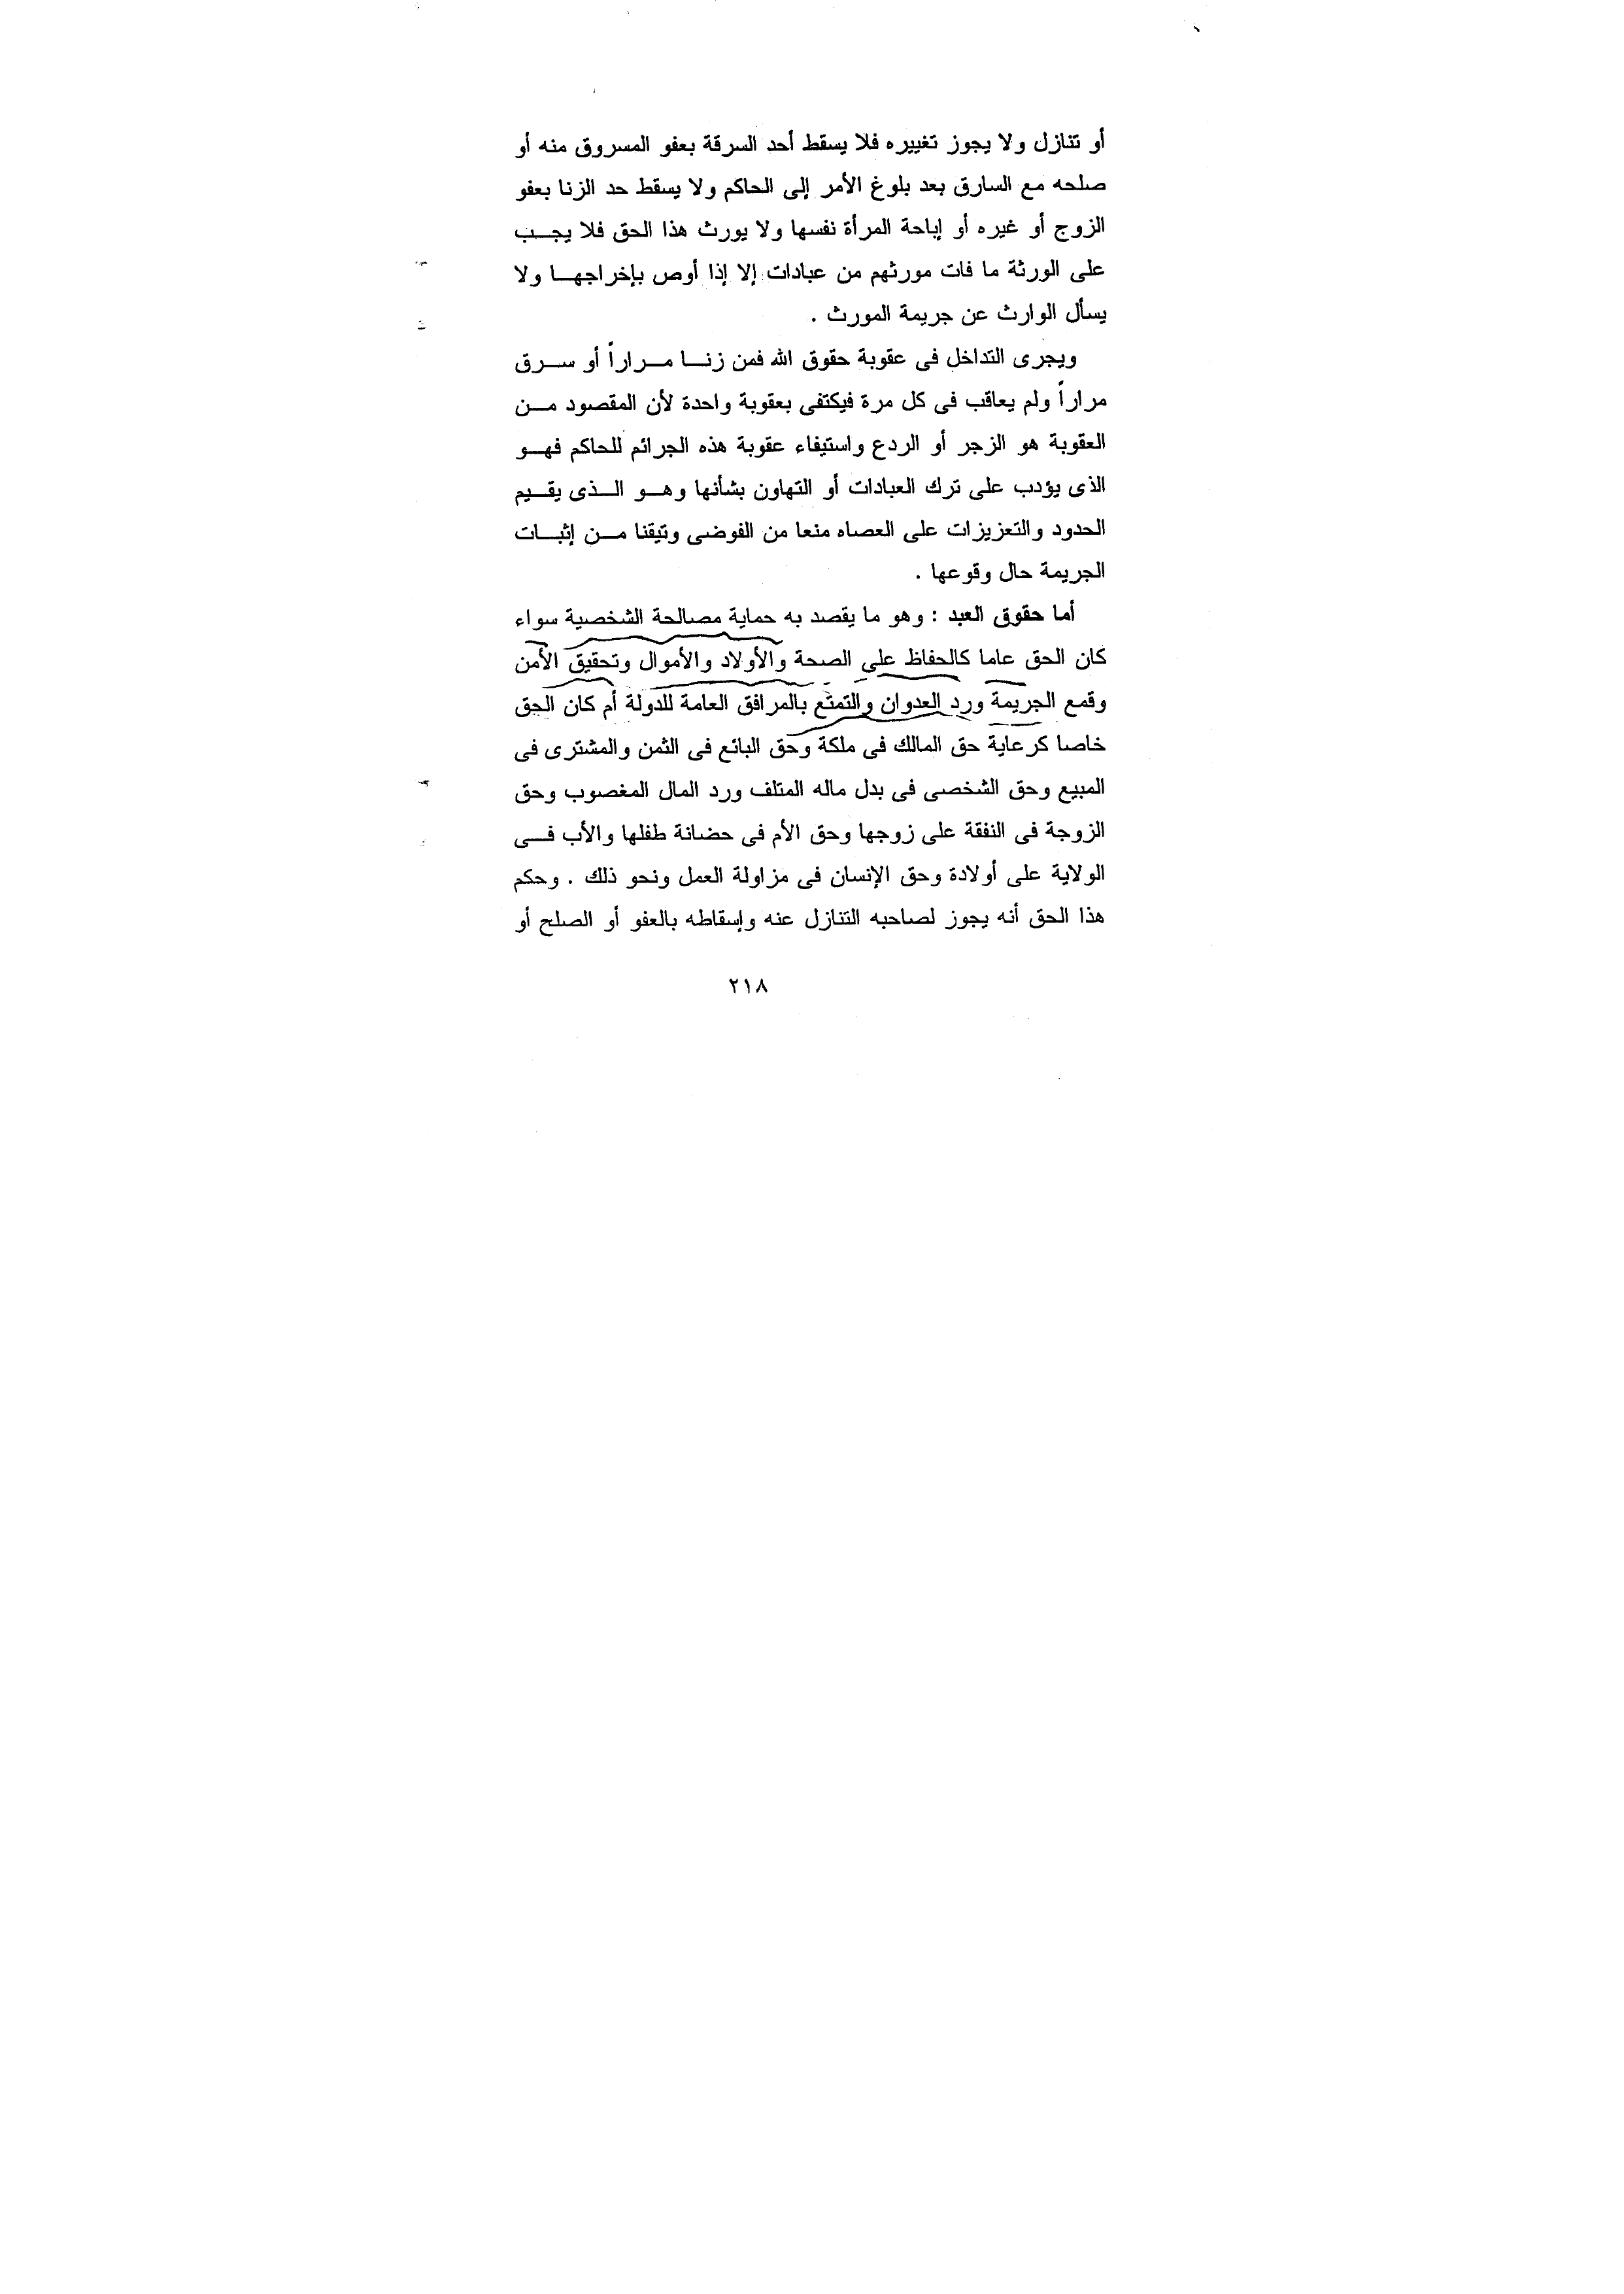 أو تنازل ولا يجوز تغييره فلا يسقط أحد السرقة بعفو المسروق منه أو
صلحه مع السارق بعد بلوغ الأمر إلى الحاكم ولا يسقط حد الزنا بعفو
الزوج أو غيره أو إباحة المرأة نفسها ولا يورث هذا الحق فلا يجب
على الورثة ما فات مورثهم من عبادات إلا إذا أوص بإخراجها ولا
يسأل الوارث عن جريمة المورث .
ويجرى التداخل فى عقوبة حقوق الله فمن زنا مراراً أو سرق
مراراً ولم يعاقب فى كل مرة فيكتفى بعقوبة واحدة لأن المقصود من
العقوبة هو الزجر أو الردع واستيفاء عقوبة هذه الجرائم للحاكم فهو
الذى يؤدب على ترك العبادات أو التهاون بشأنها وهو الذى يقيم
الحدود والتعزيزات على العصاه منعا من الفوضى وتيقنا من إثبات
الجريمة حال وقوعها .
أما حقوق العبد : وهو ما يقصد به حماية مصالحة الشخصية سواء
كان الحق عاما كالحفاظ على الصحة والأولاد والأموال وتحقيق الأمن
وقمع الجريمة ورد العدوان والتمتع بالمرافق العامة للدولة أم كان الحق
خاصا كرعاية حق المالك فى ملكة وحق البائع فى الثمن والمشترى فى
المبيع وحق الشخصى فى بدل ماله المتلف ورد المال المغصوب وحق
الزوجة فى النفقة على زوجها وحق الأم فى حضانة طفلها والأب فى
الولاية على أولادة وحق الإنسان فى مزاولة العمل ونحو ذلك . وحكم
هذا الحق أنه يجوز لصاحبه التنازل عنه وإسقاطه بالعفو أو الصلح أو
٢١٨